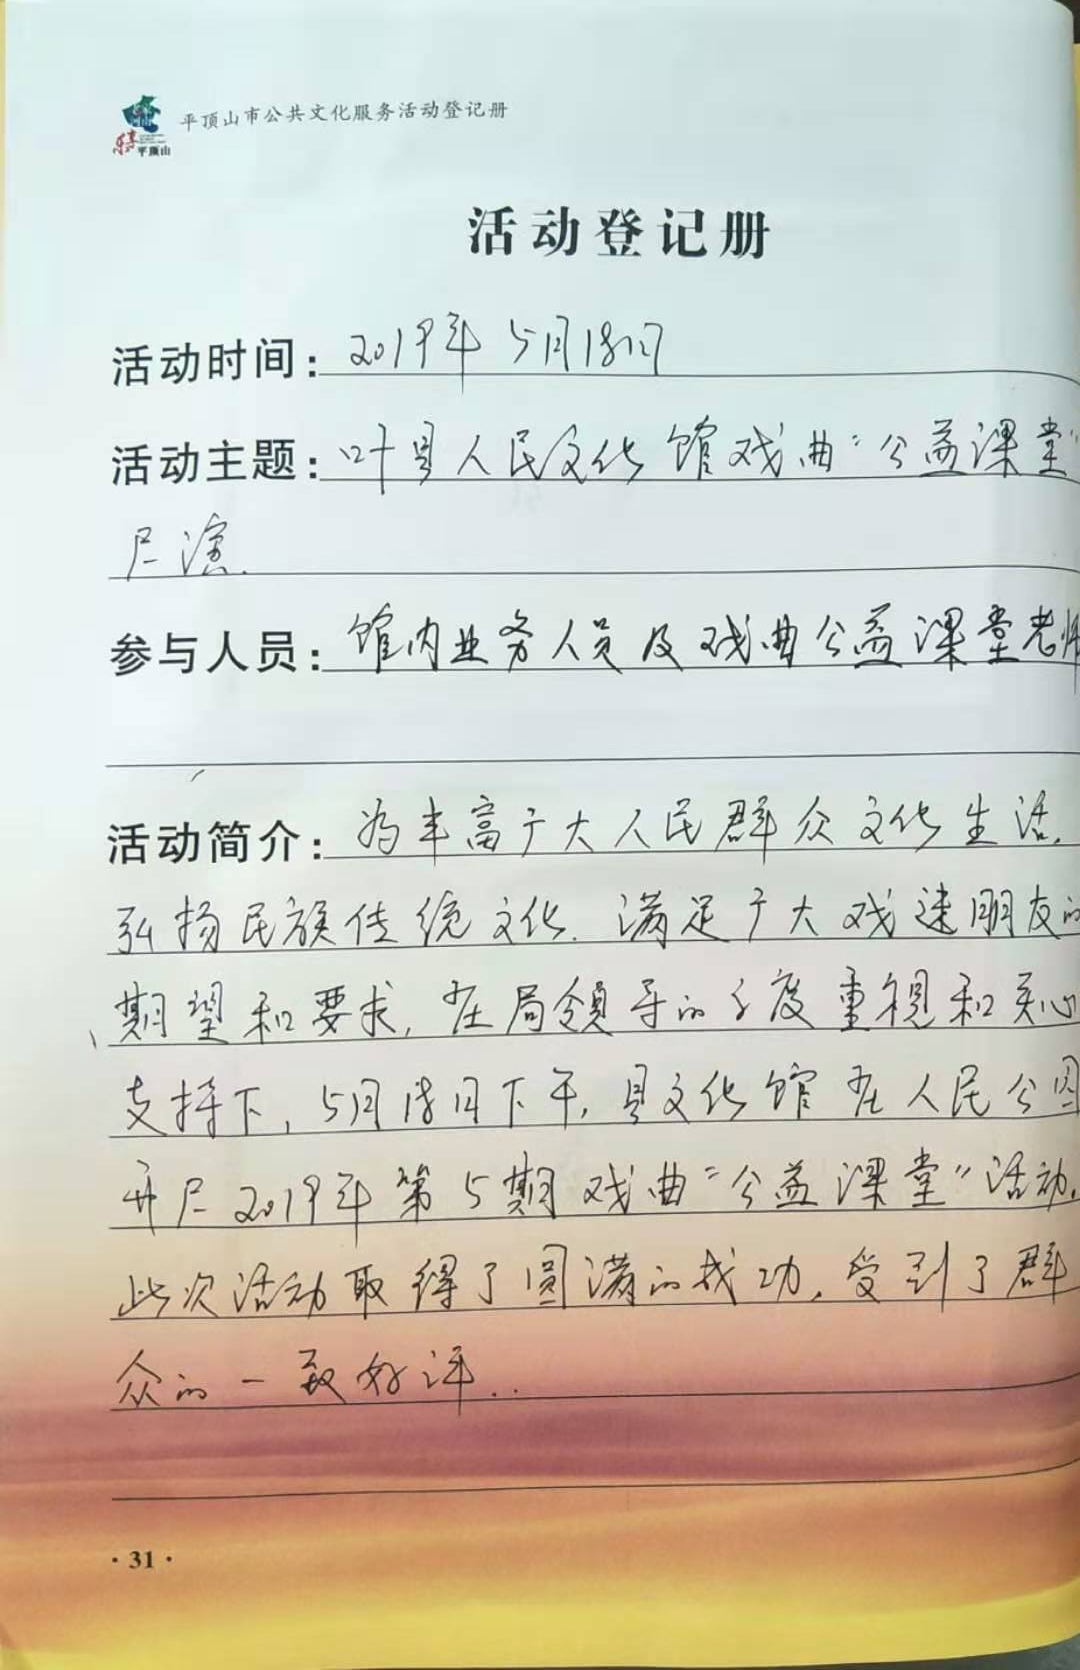 平顶山市公共文化服务活动登记册
乐享
平顶山
活动登记册
活动时间：2019年5月18日
活动主题：叶县人民文化馆戏曲“公益课堂”
展演.
参与人员：馆内业务人员及戏曲公益课堂老师
活动简介：为丰富广大人民群众文化生活,
弘扬民族传统文化. 满足广大戏迷朋友的
期望和要求, 在局领导的高度重视和关心
支持下, 5月18日下午, 县文化馆在人民公园
开展2019年第5期戏曲“公益课堂”活动,
此次活动取得了圆满的成功, 受到了群
众的一致好评..
·31·